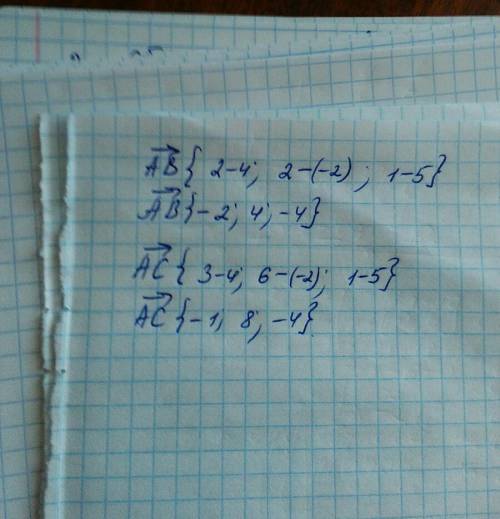 AB→{ 2-4; 2-(-2); 1-5}
AB→{-2; 4; -4}
AC→{ 3-4; 6-(-2); 1-5}
AC→{-1; 8; -4}